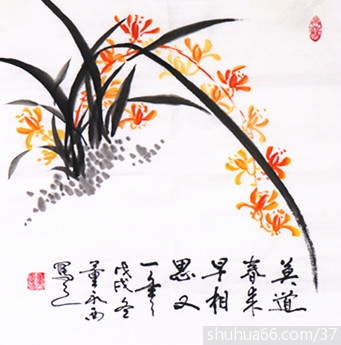 莫道
春来
早相
思又
一年
戊戌冬
董永西
写之
shuhua66.com/37